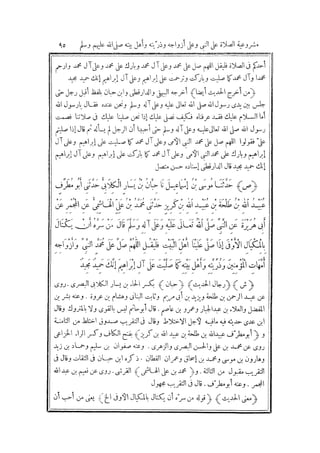 مشروعية الصلاة على النبى وعلى أزواجه وذرّيته وأهل بيته صلى الله عليهم وسلم ٩٥
أحدكم فى الصلاة فليقل اللهم صل على محمد وعلى آل محمد وبارك على محمد وعلى آل محمد وارحم
محمدا وآل محمد كما صليت وباركت وترحمت على إبراهيم وعلى آل إبراهيم إنك حميد مجيد
﴿من أخرج الحديث أيضا﴾ أخرجه البيهقى والدارقطنى وابن حبان بلفظ أقبل رجل حتى
جلس بين يدى رسول الله صلى الله تعالى عليه وعلى آله وسلم ونحن عنده فقال يارسول الله
أما السلام عليك فقد عرفناه فكيف نصلى عليك إذا نحن صلينا عليك فى صلاتنا فصمت
رسول الله صلى الله تعالى عليه وعلى آله وسلم حتى أحببنا أن الرجل لم يسأله ثم قال إذا صليتم
علىّ فقولوا اللهم صل على محمد النبى الأمى وعلى آل محمد كما صليت على إبراهيم وعلى آل
إبراهيم وبارك على محمد النبى الأمى وعلى آل محمد كما باركت على إبراهيم وعلى آل إبراهيم
إنك حميد مجيد قال الدارقطنى إسناده حسن متصل
﴿ص﴾ حَدَّثَنَا مُوسَى بْنُ إِسْمَاعِيلَ نَا حِبَّانُ بْنُ يَسَارٍ الْكِلَابِىُّ حَدَّثَنِى أَبُو مُطَرِّفٍ
عُبَيْدُ اللهِ بْنُ طَلْحَةَ بْنِ عُبَيْدِ اللهِ بْنِ كَرِيزٍ حَدَّثَنِى مُحَمَّدُ بْنُ عَلِىٍّ الْهَاشِمِىُّ عَنِ الْمُجْمِرِ عَنْ
أَبِى هُرَيْرَةَ عَنِ النَّبِىِّ صَلَّى اللهُ تَعَالَى عَلَيْهِ وَعَلَى آلِهِ وَسَلَّمَ قَالَ مَنْ سَرَّهُ أَنْ يَكْتَالَ
بِالْمِكْيَالِ الْأَوْفَى إِذَا صَلَّى عَلَيْنَا أَهْلَ الْبَيْتِ فَلْيَقُلِ اللَّهُمَّ صَلِّ عَلَى مُحَمَّدٍ النَّبِىِّ وَأَزْوَاجِهِ
أُمَّهَاتِ الْمُؤْمِنِينَ وَذُرِّيَّتِهِ وَأَهْلِ بَيْتِهِ كَمَا صَلَّيْتَ عَلَى آلِ إِبْرَاهِيمَ إِنَّكَ حَمِيدٌ مَجِيدٌ
﴿ش﴾ ﴿رجال الحديث﴾ ﴿حبان﴾ بكسر الحاء بن يسار الكلابى البصرى. روى
عن عبد الرحمن بن طلحة وبريد بن أبى مريم وثابت البنانى وهشام بن عروة. وعنه بشر بن
المفضل والعلاء بن عبد الجبار وعمرو بن عاصم. قال أبو حاتم ليس بالقوى ولا بالمتروك وقال
ابن عدى حديثه فيه مافيه لأجل الاختلاط وقال فى التقريب صدوق اختلط من الثامنة
و﴿أبو مطرّف عبيد الله بن طلحة بن عبيد الله بن كريز﴾ بفتح الكاف وكسر الراء الخزاعى
روى عن محمد بن على والحسن البصرى والزهرى. وعنه صفوان بن سليم وحماد بن زيد
وهارون بن موسى ومحمد بن إسحاق وعمران القطان. ذكره ابن حبان فى الثقات وقال فى
التقريب مقبول من الثالثة. و﴿محمد بن على الهاشمى﴾ القرشى. روى عن نعيم بن عبد الله
المجمر. وعنه أبو مطرّف. قال فى التقريب مجهول
﴿معنى الحديث﴾ ﴿قوله من سرّه أن يكتال بالمكيال الأوفى الخ﴾ يعنى من أحب أن